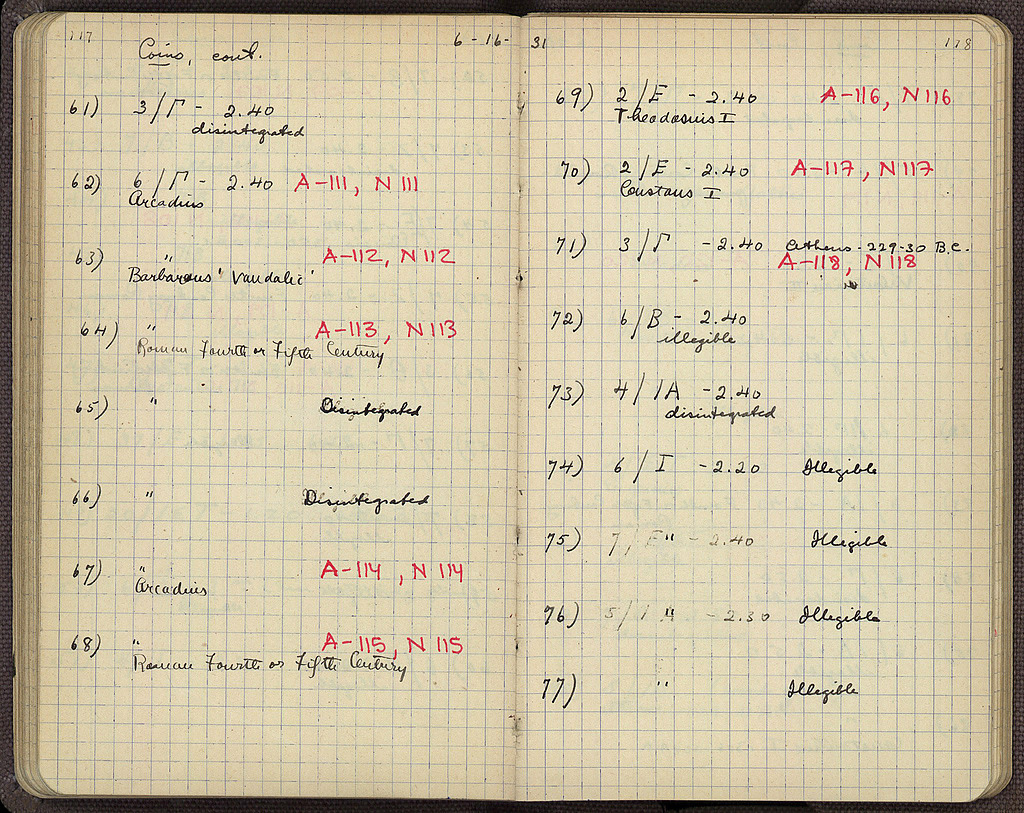 117
Coins, cont.
6-16-
61) 3/Γ - 2.40
disintegrated
62) 6/Γ - 2.40 A-111, N 111
Arcadius
63) " A-112, N 112
Barbarous 'Vandalic'
64) " A-113, N 113
Roman Fourth or Fifth Century
65) " Disintegrated
66) " Disintegrated
67) " A-114, N 114
Arcadius
68) " A-115, N 115
Roman Fourth or Fifth Century
31
118
69) 2/E - 2.40 A-116, N 116
Theodosius I
70) 2/E - 2.40 A-117, N 117
Constans I
71) 3/Γ - 2.40 Athens - 229-30 B.C.
A-118, N 118
72) 6/B - 2.40
illegible
73) 4/IA - 2.40
disintegrated
74) 6/I - 2.20 Illegible
75) 7/E " - 2.40 Illegible
76) 5/ " - 2.30 Illegible
77) " Illegible